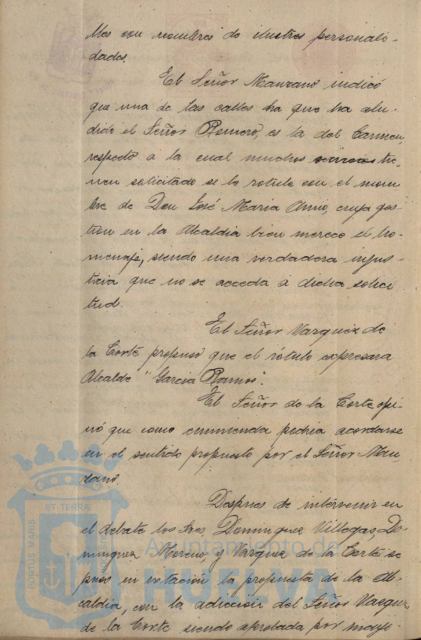 los con nombres de ilustres personali-
dades.
El Señor Manzano indicó
que una de las calles ha que ha alu-
dido el Señor Romero, es la del Carmen,
respecto a la cual muchos vecinos tie-
nen solicitado se la rotule con el nom-
bre de Don José Maria Amo, cuya ges-
tion en la Alcaldia bien merece el ho-
menaje, siendo una verdadera injus-
ticia que no se acceda á dicha solici-
tud.
El Señor Vazquez de
la Corte propuso que el rótulo expresara
Alcalde "Garcia Ramos".
El Señor de la Corte opi-
nó que como enmienda podria acordarse
en el sentido propuesto por el Señor
Despues de intervenir en
el debate los Sres. Dominguez Villegas, Do-
minguez Moreno y Vazquez de la Corte se
puso en votacion la propuesta de la Al-
caldia, con la adiccion del Señor Vazquez
de la Corte siendo aprobada por mayo-
Ayuntamiento de
HUELVA
PORTUS MARIS ET TERRAE